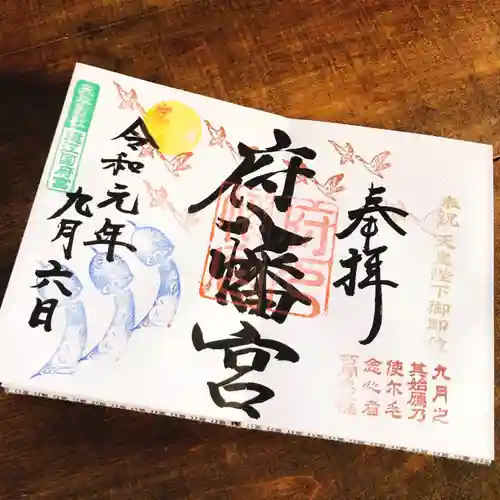 奉祝 天皇陛下御即位
奉拝
九月之
其始鴈乃
使尓毛
念心者
府八幡宮
令和元年
九月六日